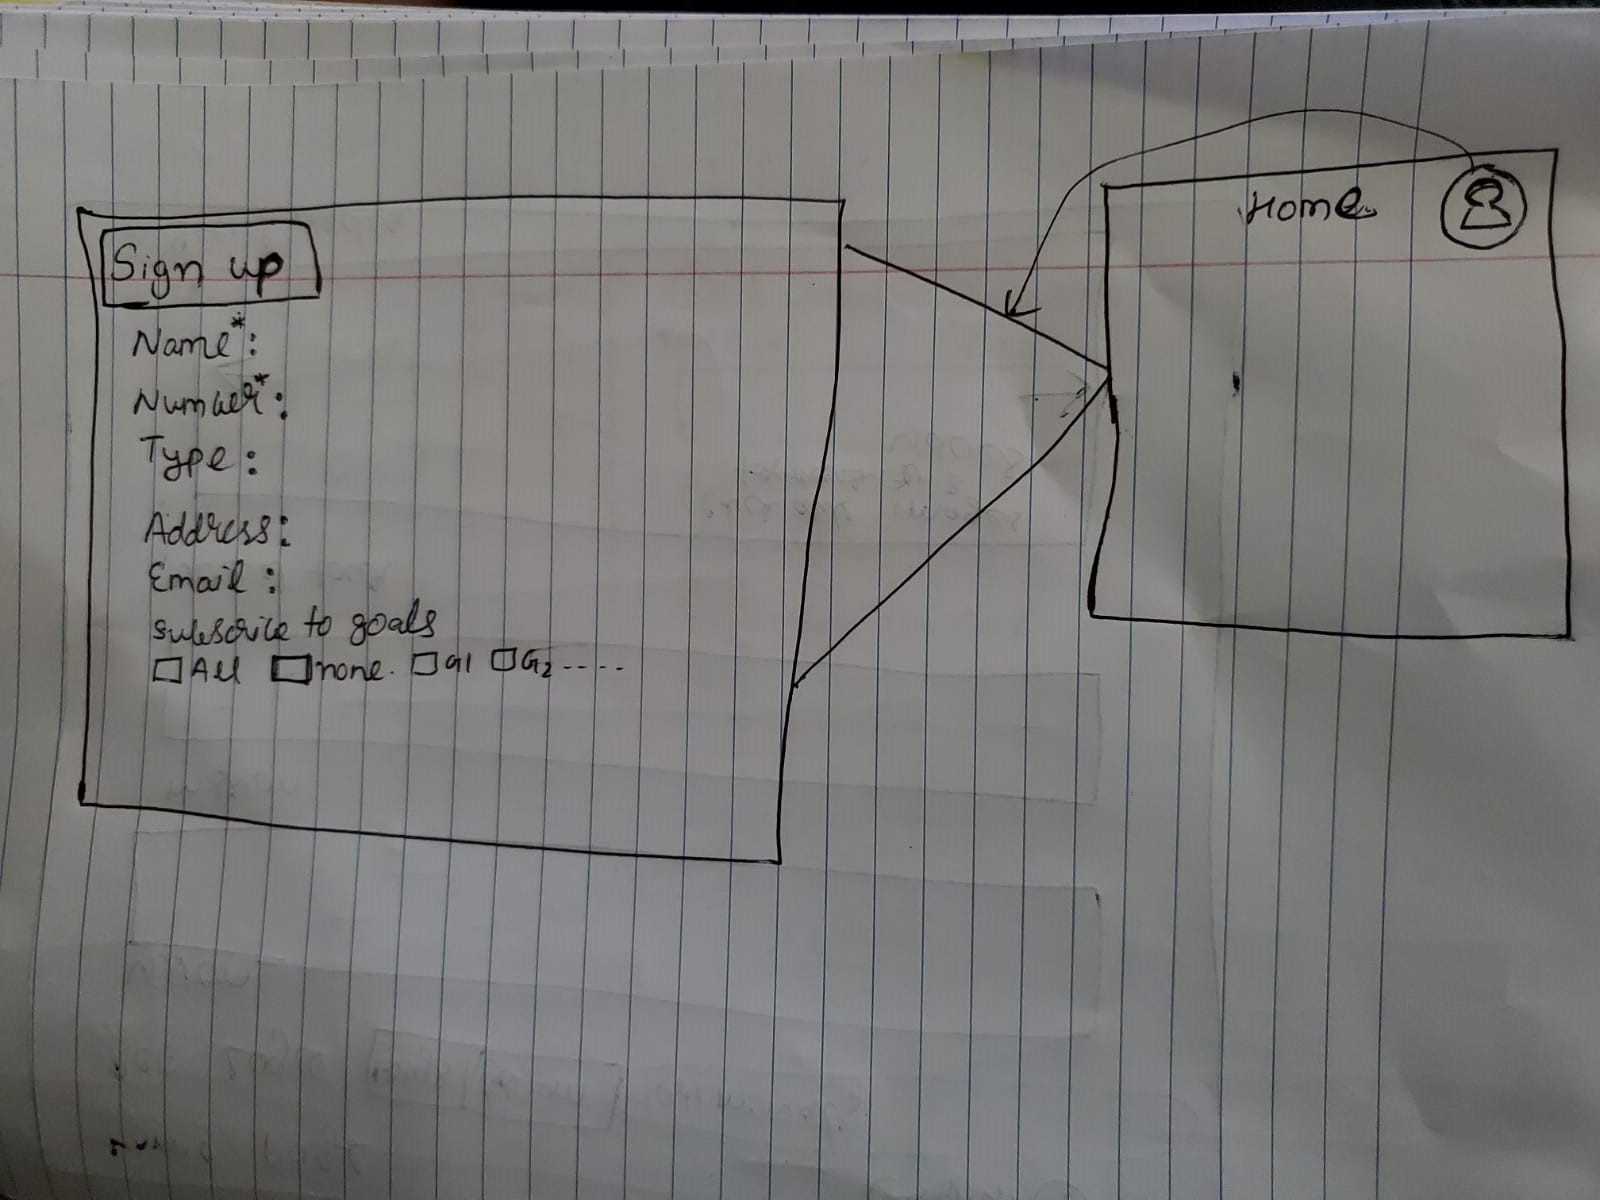 Sign up
Name*:
Number*:
Type:
Address:
Email:
subscribe to goals
All none. G1 G2 ----
Home